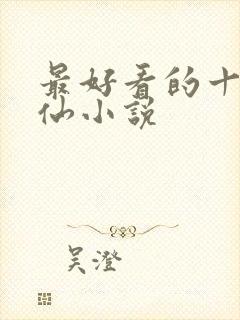 最好看的十
仙小說
吴澄